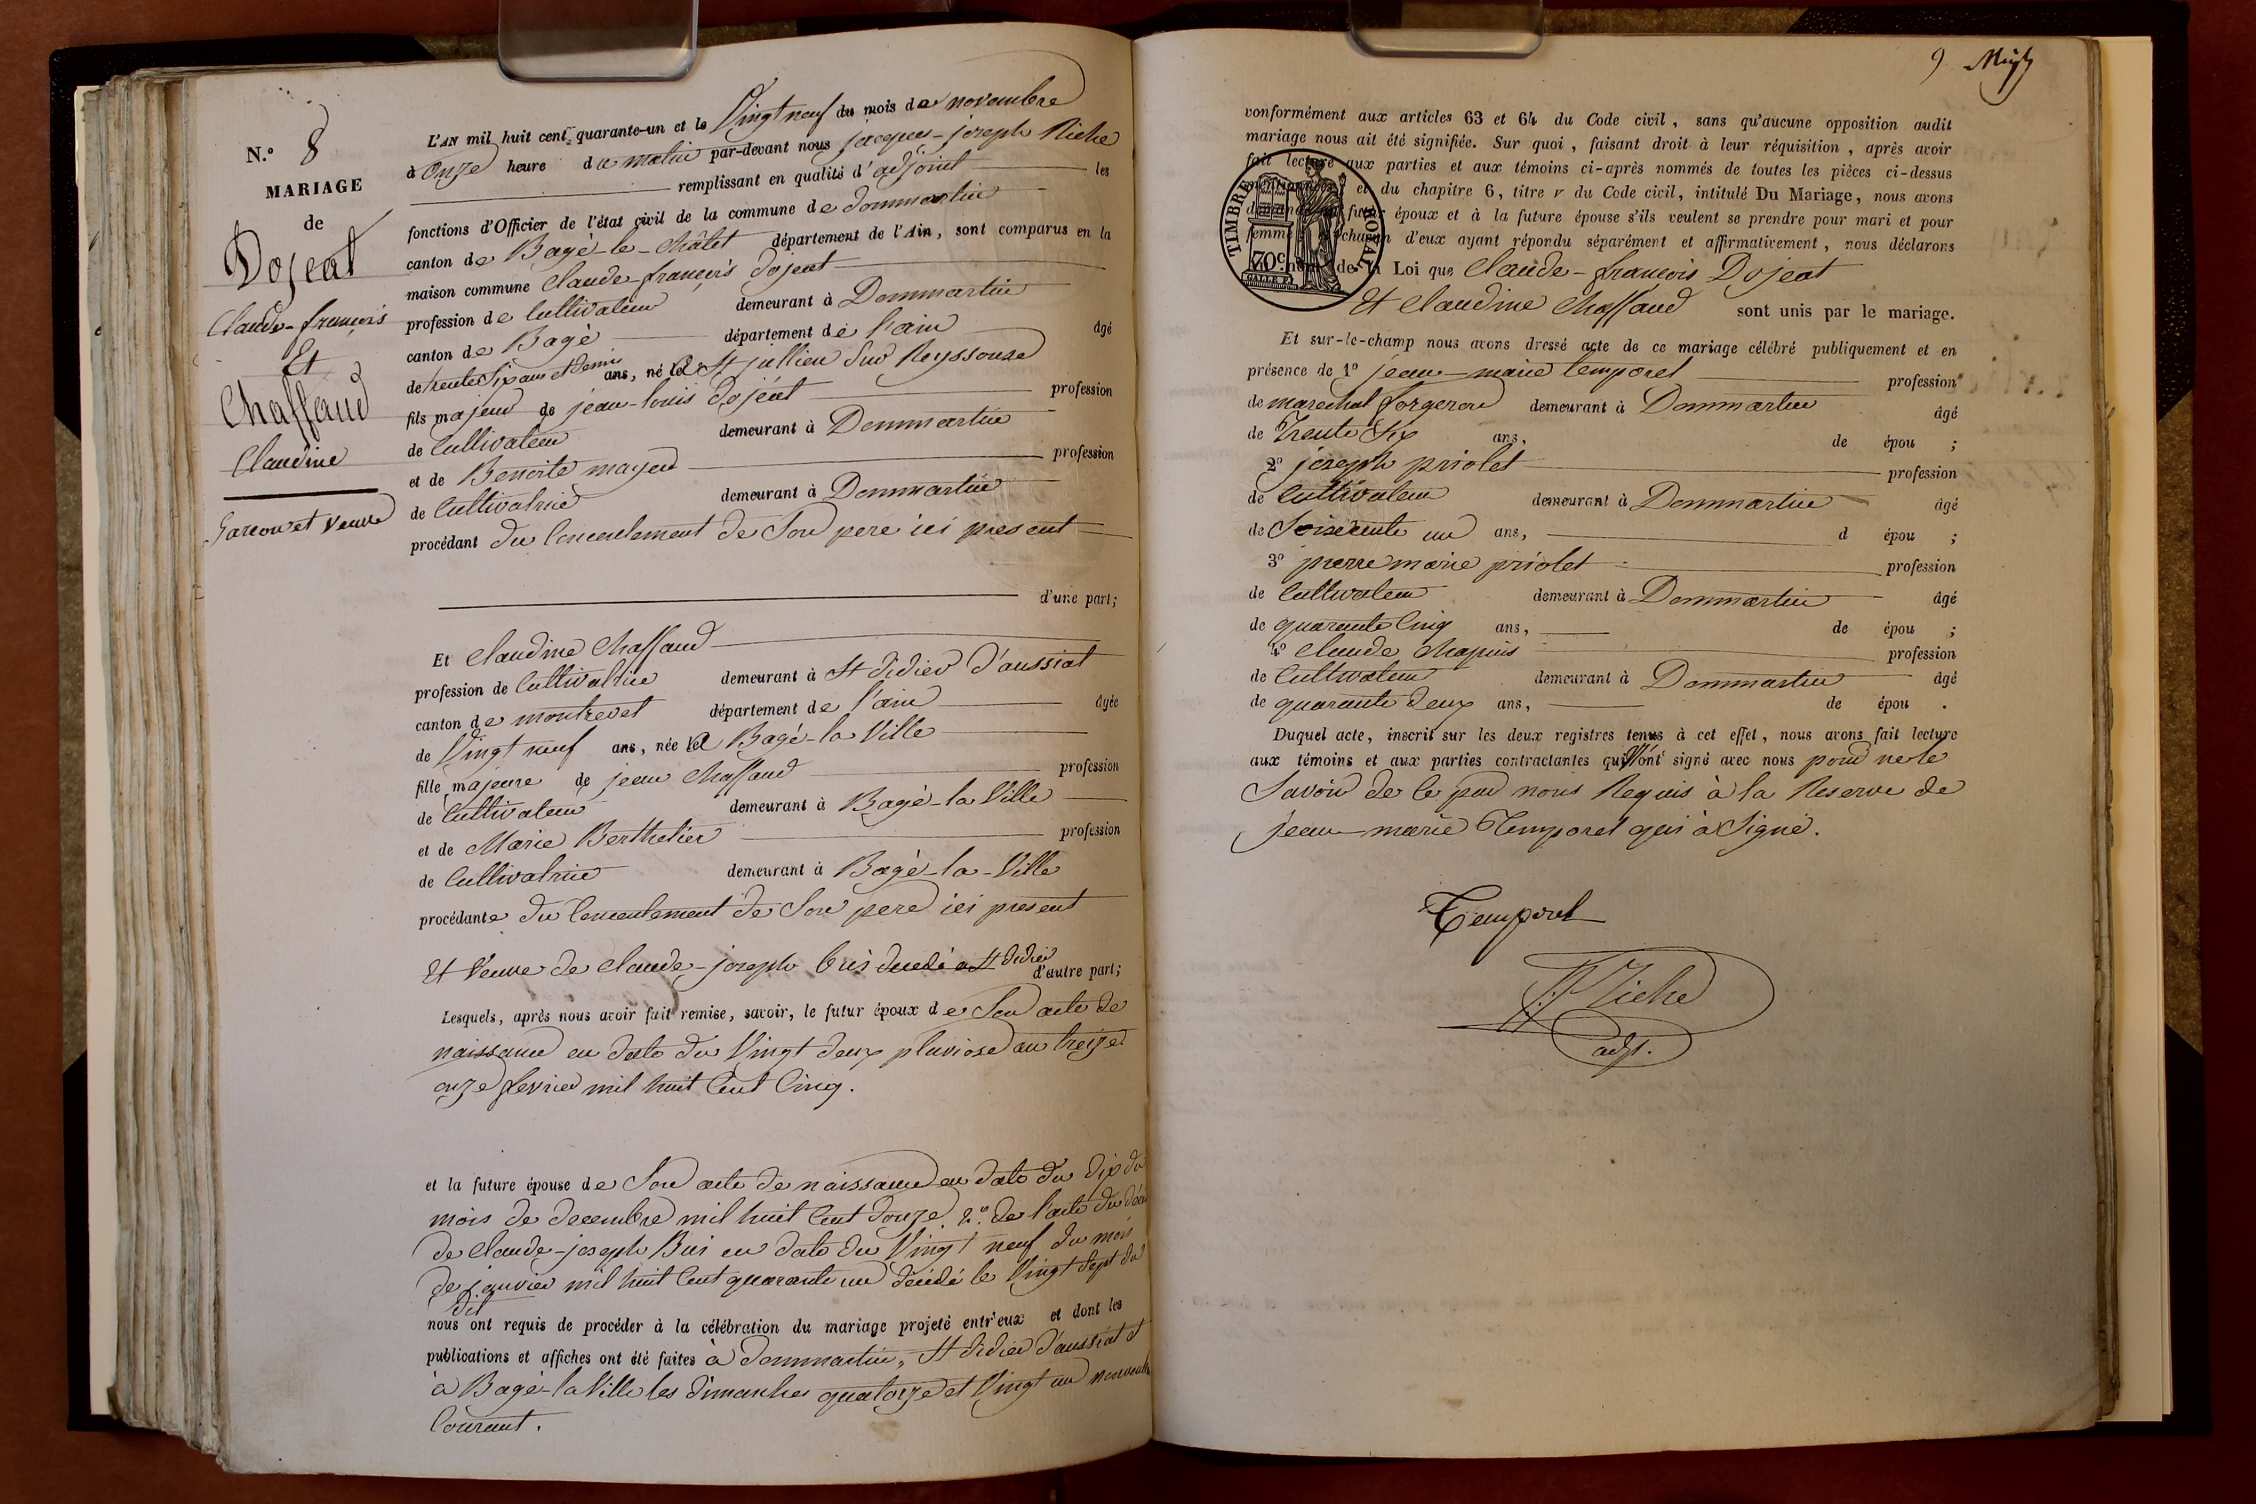 N.º 8
MARIAGE
de
Dojeat
Claude-françois
Et
Chaffaud
Claudine
Garcon et Veuve
L'AN mil huit cent quarante-un et le Vingt neuf du mois de novembre
à Onze heure du matin par-devant nous jacques-joseph Niche
remplissant en qualité d'adjoint les
fonctions d'Officier de l'état civil de la commune de dommartin
canton de Bagé-le-Châtel département de l'Ain, sont comparus en la
maison commune Claude françois dojeat
profession de Cultivateur demeurant à Dommartin
canton de Bagé département de l'ain âgé
de trente Six ans et demi ans, né à St jullien Sur Reyssouze
fils majeur de jean-louis dojéat profession
de Cultivateur demeurant à Dommartin
et de Benoite mayeur profession
de Cultivatrice demeurant à Dommartin
procédant du Concentement de Son pere ici present
d'une part;
Et Claudine Chaffaud
profession de Cultivatrice demeurant à St didier d'aussiat
canton de montrevel département de l'ain âgée
de Vingt neuf ans, née à Bagé-la Ville
fille majeure de jean Chaffaud profession
de Cultivateur demeurant à Bagé-la Ville
et de Marie Berthelier profession
de Cultivatrice demeurant à Bagé-la-Ville
procédante du Concentement de Son pere ici present
Et Veuve de Claude-joseph Buis decedé à St didier d'autre part;
Lesquels, après nous avoir fait remise, savoir, le futur époux de Son acte de
naissance en date du Vingt deux pluviose an treize
onze fevrier mil huit Cent Cinq.
et la future épouse de Son acte de naissance en date du dix du
mois de decembre mil huit Cent douze, 2º. de l'acte du décé
de Claude-joseph Buis en date du Vingt neuf du mois
de janvier mil huit Cent quarante un décédé le Vingt Sept du
dit
nous ont requis de procéder à la célébration du mariage projeté entr'eux et dont les
publications et affiches ont été faites à dommartin, St didier d'aussiat et
à Bagé-la Ville les dimanches quatorze et Vingt un novembre
Courant.
9
vonformément aux articles 63 et 64 du Code civil, sans qu'aucune opposition audit
mariage nous ait été signifiée. Sur quoi, faisant droit à leur réquisition, après avoir
fait lecture aux parties et aux témoins ci-après nommés de toutes les pièces ci-dessus
mentionnées et du chapitre 6, titre v du Code civil, intitulé Du Mariage, nous avons
demandé au futur époux et à la future épouse s'ils veulent se prendre pour mari et pour
femme; chacun d'eux ayant répondu séparément et affirmativement, nous déclarons
au nom de la Loi que Claude-francois Dojeat
Et Claudine Chaffaud sont unis par le mariage.
TIMBRE ROYAL
70c
Et sur-le-champ nous avons dressé acte de ce mariage célébré publiquement et en
présence de 1º jean-marie temporel profession
de marechal forgeron demeurant à Dommartin âgé
de Trente Six ans, de épou ;
2º joseph priolet profession
de Cultivateur demeurant à Dommartin âgé
de Soixente un ans, d épou ;
3º pierre marie priolet profession
de Cultivateur demeurant à Dommartin âgé
de quarante Cinq ans, de épou ;
4º Claude Chapuis profession
de Cultivateur demeurant à Dommartin âgé
de quarante deux ans, de épou .
Duquel acte, inscrit sur les deux registres tenus à cet effet, nous avons fait lecture
aux témoins et aux parties contractantes qui n'ont signé avec nous pour ne le
Savoir de Ce par nous Requis à la Reserve de
jean-marie Temporel qui à Signé.
Temporel
JJ Niche
adjt.